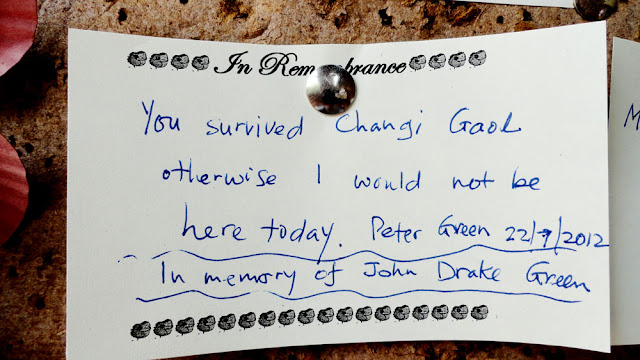 In Remembrance
You survived Changi Gaol
otherwise I would not be
here today. Peter Green 22/9/2012
In memory of John Drake Green
M